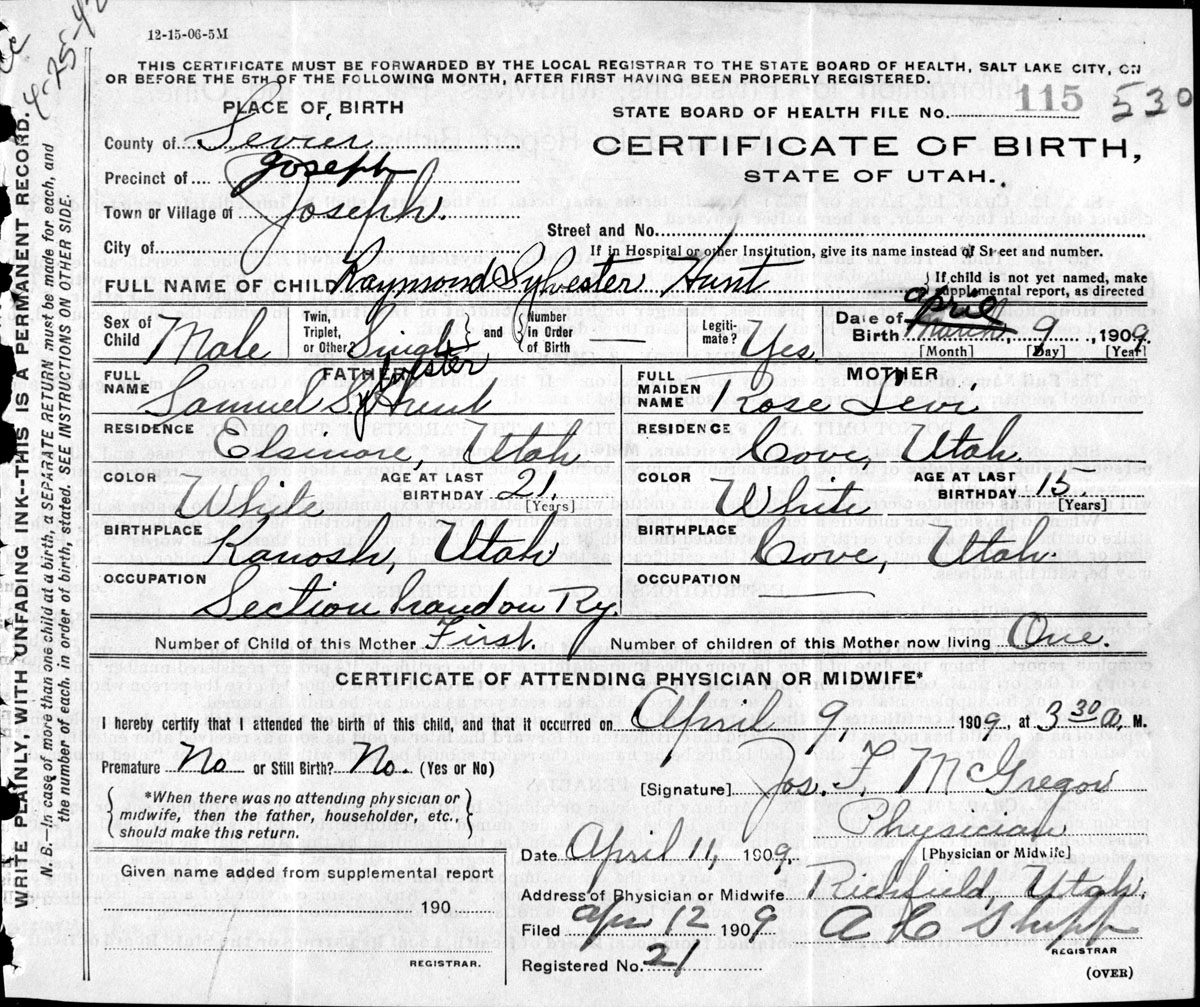 12-15-06-5M
4-25-42
THIS CERTIFICATE MUST BE FORWARDED BY THE LOCAL REGISTRAR TO THE STATE BOARD OF HEALTH, SALT LAKE CITY, ON
OR BEFORE THE 5TH OF THE FOLLOWING MONTH, AFTER FIRST HAVING BEEN PROPERLY REGISTERED.
PLACE OF BIRTH
STATE BOARD OF HEALTH FILE NO. 115 530
County of Sevier
CERTIFICATE OF BIRTH,
STATE OF UTAH.
Precinct of Joseph
Town or Village of Joseph.
Street and No.
City of
If in Hospital or other Institution, give its name instead of Street and number.
FULL NAME OF CHILD Raymond Sylvester Hunt
If child is not yet named, make supplemental report, as directed
Sex of Child Male
Twin, Triplet, or Other? Single and Number in Order of Birth —
Legitimate? Yes.
Date of Birth March April 9, 1909.
[Month] [Day] [Year]
FATHER
FULL NAME Samuel Sylvester Hunt
MOTHER
FULL MAIDEN NAME Rose Levi
RESIDENCE Elsinore, Utah.
RESIDENCE Cove, Utah.
COLOR White AGE AT LAST BIRTHDAY 21. [Years]
COLOR White AGE AT LAST BIRTHDAY 15. [Years]
BIRTHPLACE Kanosh, Utah
BIRTHPLACE Cove, Utah.
OCCUPATION Section hand on Ry.
OCCUPATION —
Number of Child of this Mother First.
Number of children of this Mother now living One.
CERTIFICATE OF ATTENDING PHYSICIAN OR MIDWIFE*
I hereby certify that I attended the birth of this child, and that it occurred on April 9, 1909, at 3 30 a. M.
Premature No or Still Birth? No. (Yes or No)
*When there was no attending physician or
midwife, then the father, householder, etc.,
should make this return.
[Signature] Jos. F. McGregor
Physician
[Physician or Midwife]
Date April 11, 1909.
Given name added from supplemental report
190
REGISTRAR.
Address of Physician or Midwife Richfield, Utah.
Filed Apr 12 1909
REGISTRAR
Registered No. 21
(OVER)
WRITE PLAINLY, WITH UNFADING INK--THIS IS A PERMANENT RECORD.
N. B.—In case of more than one child at a birth, a SEPARATE RETURN must be made for each, and
the number of each, in order of birth, stated. SEE INSTRUCTIONS ON OTHER SIDE.